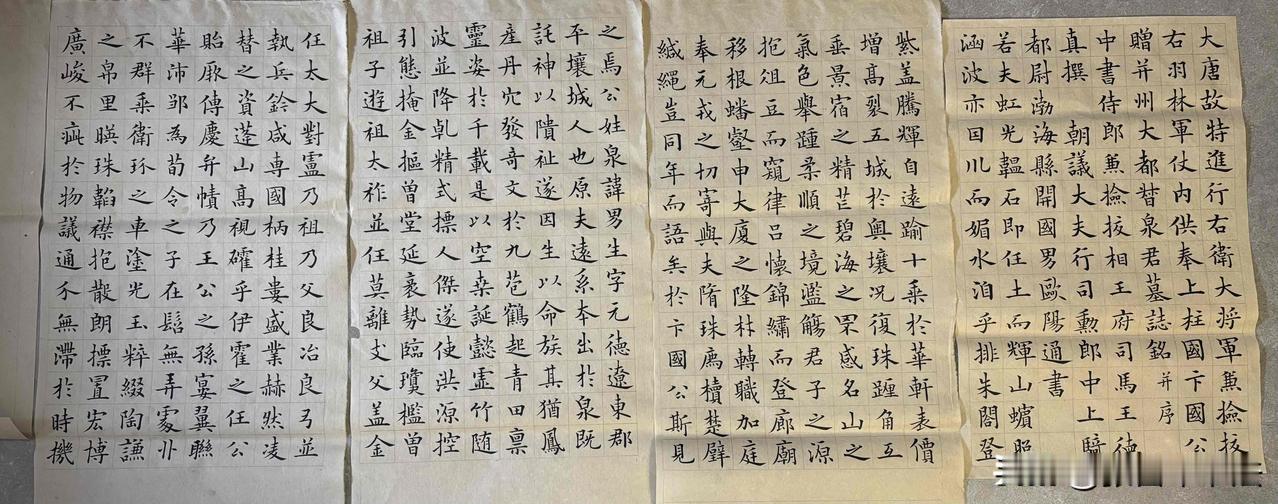 大唐故特進行右衛大將軍兼撿挍
右羽林軍仗內供奉上柱國卞國公
贈并州大都督泉君墓誌銘 并序
中書侍郎兼撿挍相王府司馬王德
真撰 朝議大夫行司勳郎中上騎
都尉渤海縣開國男歐陽通書
若夫虹光韞石即任土而輝山蠙照
涵波亦因川而媚水洎乎排朱閤登
紫盖騰輝自遠踰十乘於華軒表價
增高裂五城於輿壤況復珠躔角互
垂景宿之精芒碧海之罘感名山之
氣色舉踵柔順之境濫觴君子之源
抱俎豆而窺律呂懷錦繡而登廊廟
移根蟠壑申大廈之隆林轉職加庭
奉元戎之切寄與夫隋珠廌櫝楚璧
緘繩豈同年而語矣於卞國公斯見
之焉公姓泉諱男生字元德遼東郡
平壤城人也原夫遠系本出於泉既
託神以隤祉遂因生以命族其猶鳳
產丹穴發奇文於九苞鶴起青田稟
靈姿於千載是以空桑誕懿虛竹随
波並降乹精式摽人傑遂使洪源控
引態掩金摳曾堂延袤勢臨瓊檻曾
祖子遊祖太祚並任莫離支父盖金
任太大對盧乃祖乃父良冶良弓並
執兵鈐咸專國柄桂婁盛業赫然凌
替之資蓬山高視確乎伊霍之任公
貽厥傳慶弁幘乃王公之孫宴翼聯
華沛邹為荀令之子在髫無弄處丱
不群乘衛玠之車塗光玉粹綴陶謙
之帛里暎珠韜襟抱散朗摽置宏博
廣峻不疵於物議通不無滯於時機